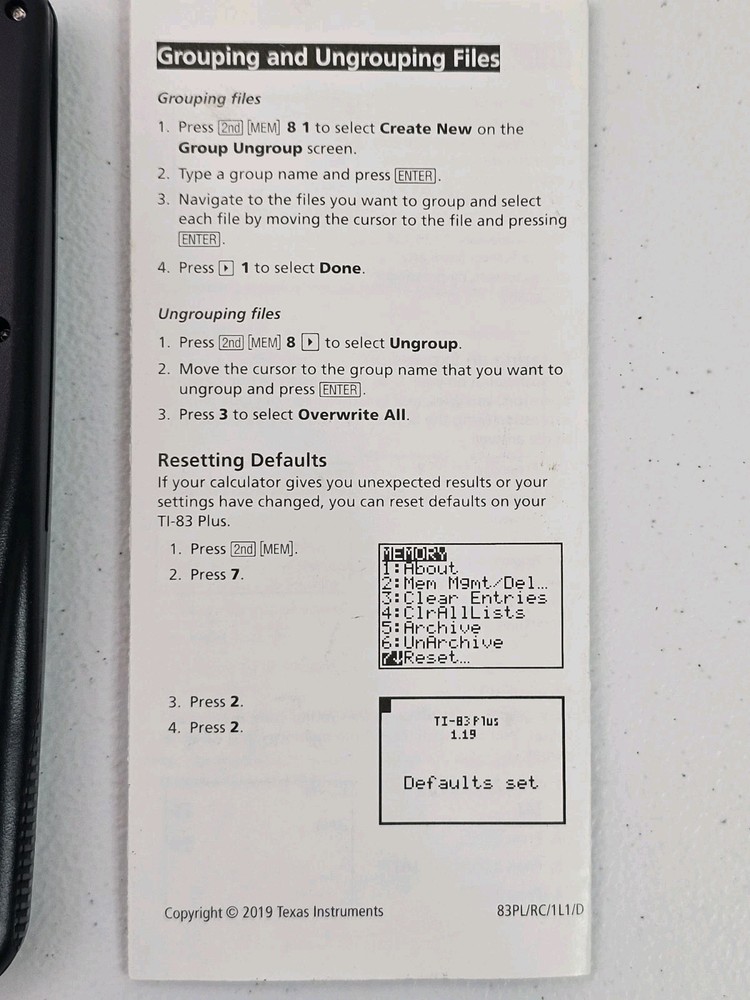 Grouping and Ungrouping Files
Grouping files
1. Press 2nd [MEM] 8 1 to select Create New on the
Group Ungroup screen.
2. Type a group name and press ENTER.
3. Navigate to the files you want to group and select
each file by moving the cursor to the file and pressing
ENTER.
4. Press ▸ 1 to select Done.
Ungrouping files
1. Press 2nd [MEM] 8 ▸ to select Ungroup.
2. Move the cursor to the group name that you want to
ungroup and press ENTER.
3. Press 3 to select Overwrite All.
Resetting Defaults
If your calculator gives you unexpected results or your
settings have changed, you can reset defaults on your
TI-83 Plus.
1. Press 2nd [MEM].
2. Press 7.
MEMORY
1:About
2:Mem Mgmt/Del…
3:Clear Entries
4:ClrAllLists
5:Archive
6:UnArchive
7↓Reset…
3. Press 2.
4. Press 2.
TI-83 Plus
1.19
Defaults set
Copyright © 2019 Texas Instruments
83PL/RC/1L1/D